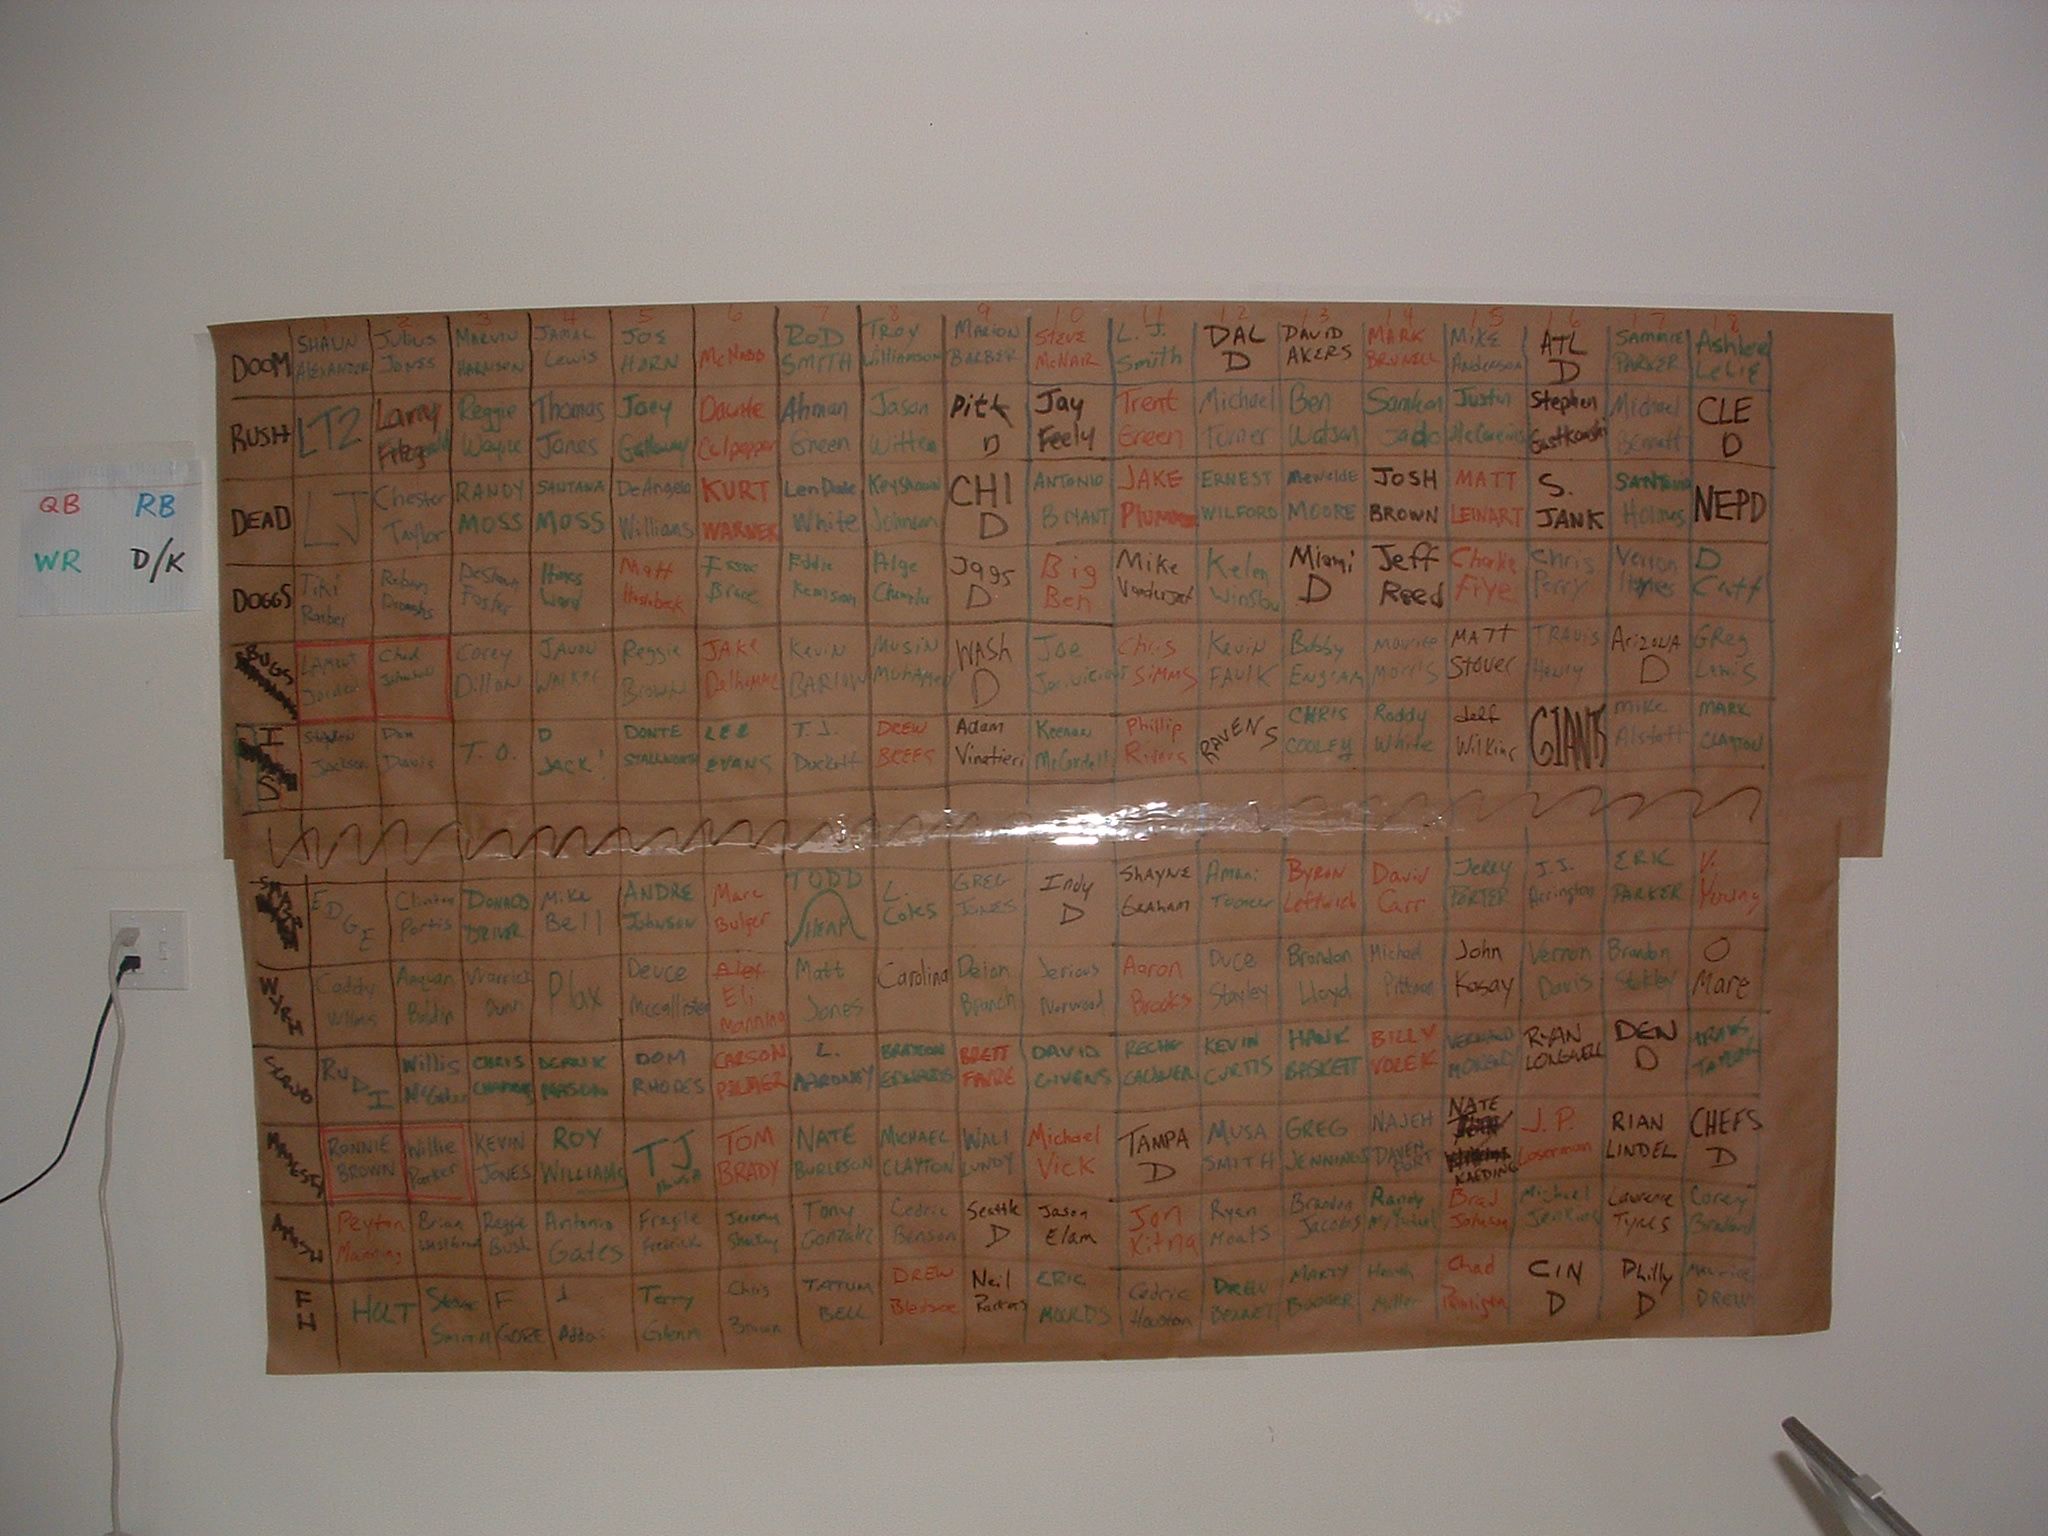 QB RB
WR D/K
1 2 3 4 5 6 7 8 9 10 11 12 13 14 15 16 17 18
DOOM SHAUN ALEXANDER Julius Jones MARVIN HARRISON JAMAL Lewis JOE HORN McNABB ROD SMITH TROY Williamson MARION BARBER STEVE McNAIR L. J. Smith DAL D DAVID AKERS MARK BRUNELL MIKE Anderson ATL D SAMMIE PARKER Ashlee LeLIE
RUSH LT2 Larry Fitzgerald Reggie Wayne Thomas Jones Joey Galloway Daunte Culpepper Ahman Green Jason Witten Pitt D Jay Feely Trent Green Michael Turner Ben Watson Samkon Gado Justin McCareins Stephen Gostkowski Michael Bennett CLE D
DEAD LJ Chester Taylor RANDY MOSS SANTANA MOSS DeAngelo Williams KURT WARNER LenDale White KeyShawn Johnson CHI D ANTONIO BRYANT JAKE PLUMMER ERNEST WILFORD Mewelde MOORE JOSH BROWN MATT LEINART S. JANK SANTONIO Holmes NEPD
DOGGS Tiki Barber Reuben Droughns DeShaun Foster Hines Ward Matt Hasselbeck Isaac Bruce Eddie Kennison Alge Crumpler Jags D Big Ben Mike Vanderjagt Kelen Winslow Miami D Jeff Reed Charlie Frye Chris Perry Vernon Haynes D Catt
BUGS LAMONT Jordan Chad Johnson Corey Dillon JAVON WALKER Reggie Brown JAKE Delhomme Kevin BARLOW MUSIN MUHAMED WASH D Joe Jurivicious Chris SIMMS Kevin FAULK Bobby ENGRAM Maurice Morris MATT Stover TRAVIS Henry ARIZONA D GReg Lewis
I S Steven Jackson Dom Davis T. O. D JACK! DONTE STALLWORTH LEE EVANS T. J. Duckett DREW BREES Adam Vinatieri Keenan McCardell Phillip Rivers RAVENS CHRIS COOLEY Roddy White Jeff Wilkins GIANTS Mike Alstott MARK CLAYTON
SMASH EDGE Clinton Portis DONALD DRIVER Mike Bell ANDRE JOHNSON Marc Bulger TODD HEAP L. Coles GREG JONES Indy D SHAYNE GRAHAM Amani Toomer BYRON Leftwich David Carr Jerry PORTER J.J. Arrington ERIK PARKER V. Young
WYRH Caddy Williams Anquan Boldin Warrick Dunn Plax Deuce Mccallister Alex Eli Manning Matt Jones Carolina Deion Branch Jerious Norwood Aaron Brooks Duce Stayley Brandon Lloyd Michael Pittman John Kasay Vernon Davis Brandon Stokley O Mare
SCRUB RUDI Willis McGahee CHRIS CHAMBERS DERRIK MASON DOM RHODES CARSON PALMER L. MARONEY BRAYLON EDWARDS BRETT FAVRE DAVID GIVENS RECHE CALDWELL KEVIN CURTIS HANK BASKETT BILLY VOLEK VERNAND MORENCY RYAN LONGWELL DEN D TRAVIS TAYLOR
MAJESTY RONNIE BROWN Willie Parker KEVIN JONES ROY WILLIAMS TJ TOM BRADY NATE BURLESON MICHAEL CLAYTON WALI LUNDY Michael Vick TAMPA D MUSA SMITH GREG JENNINGS NAJEH DAVENPORT NATE KAEDING J. P. Loserman RIAN LINDEL CHEFS D
AMISH Peyton Manning Brian Westbrook Reggie Bush Antonio Gates Fragile Fredrick Jeremy Shockey Tony Gonzalez Cedric Benson Seattle D Jason Elam Jon Kitna Ryan Moats Brandon Jacobs Randy McMichael Brad Johnson Michael Jenkins Lawrence TYNES Corey Bradford
FH HOLT Steve Smith F GORE J Addai Terry Glenn Chris Brown TATUM BELL DREW Bledsoe Neil Rackers ERIC MOULDS Cedric Houston DREW BENNET MARTY BOOKER Heath Miller Chad Pennington CIN D Philly D MAURICE DREW